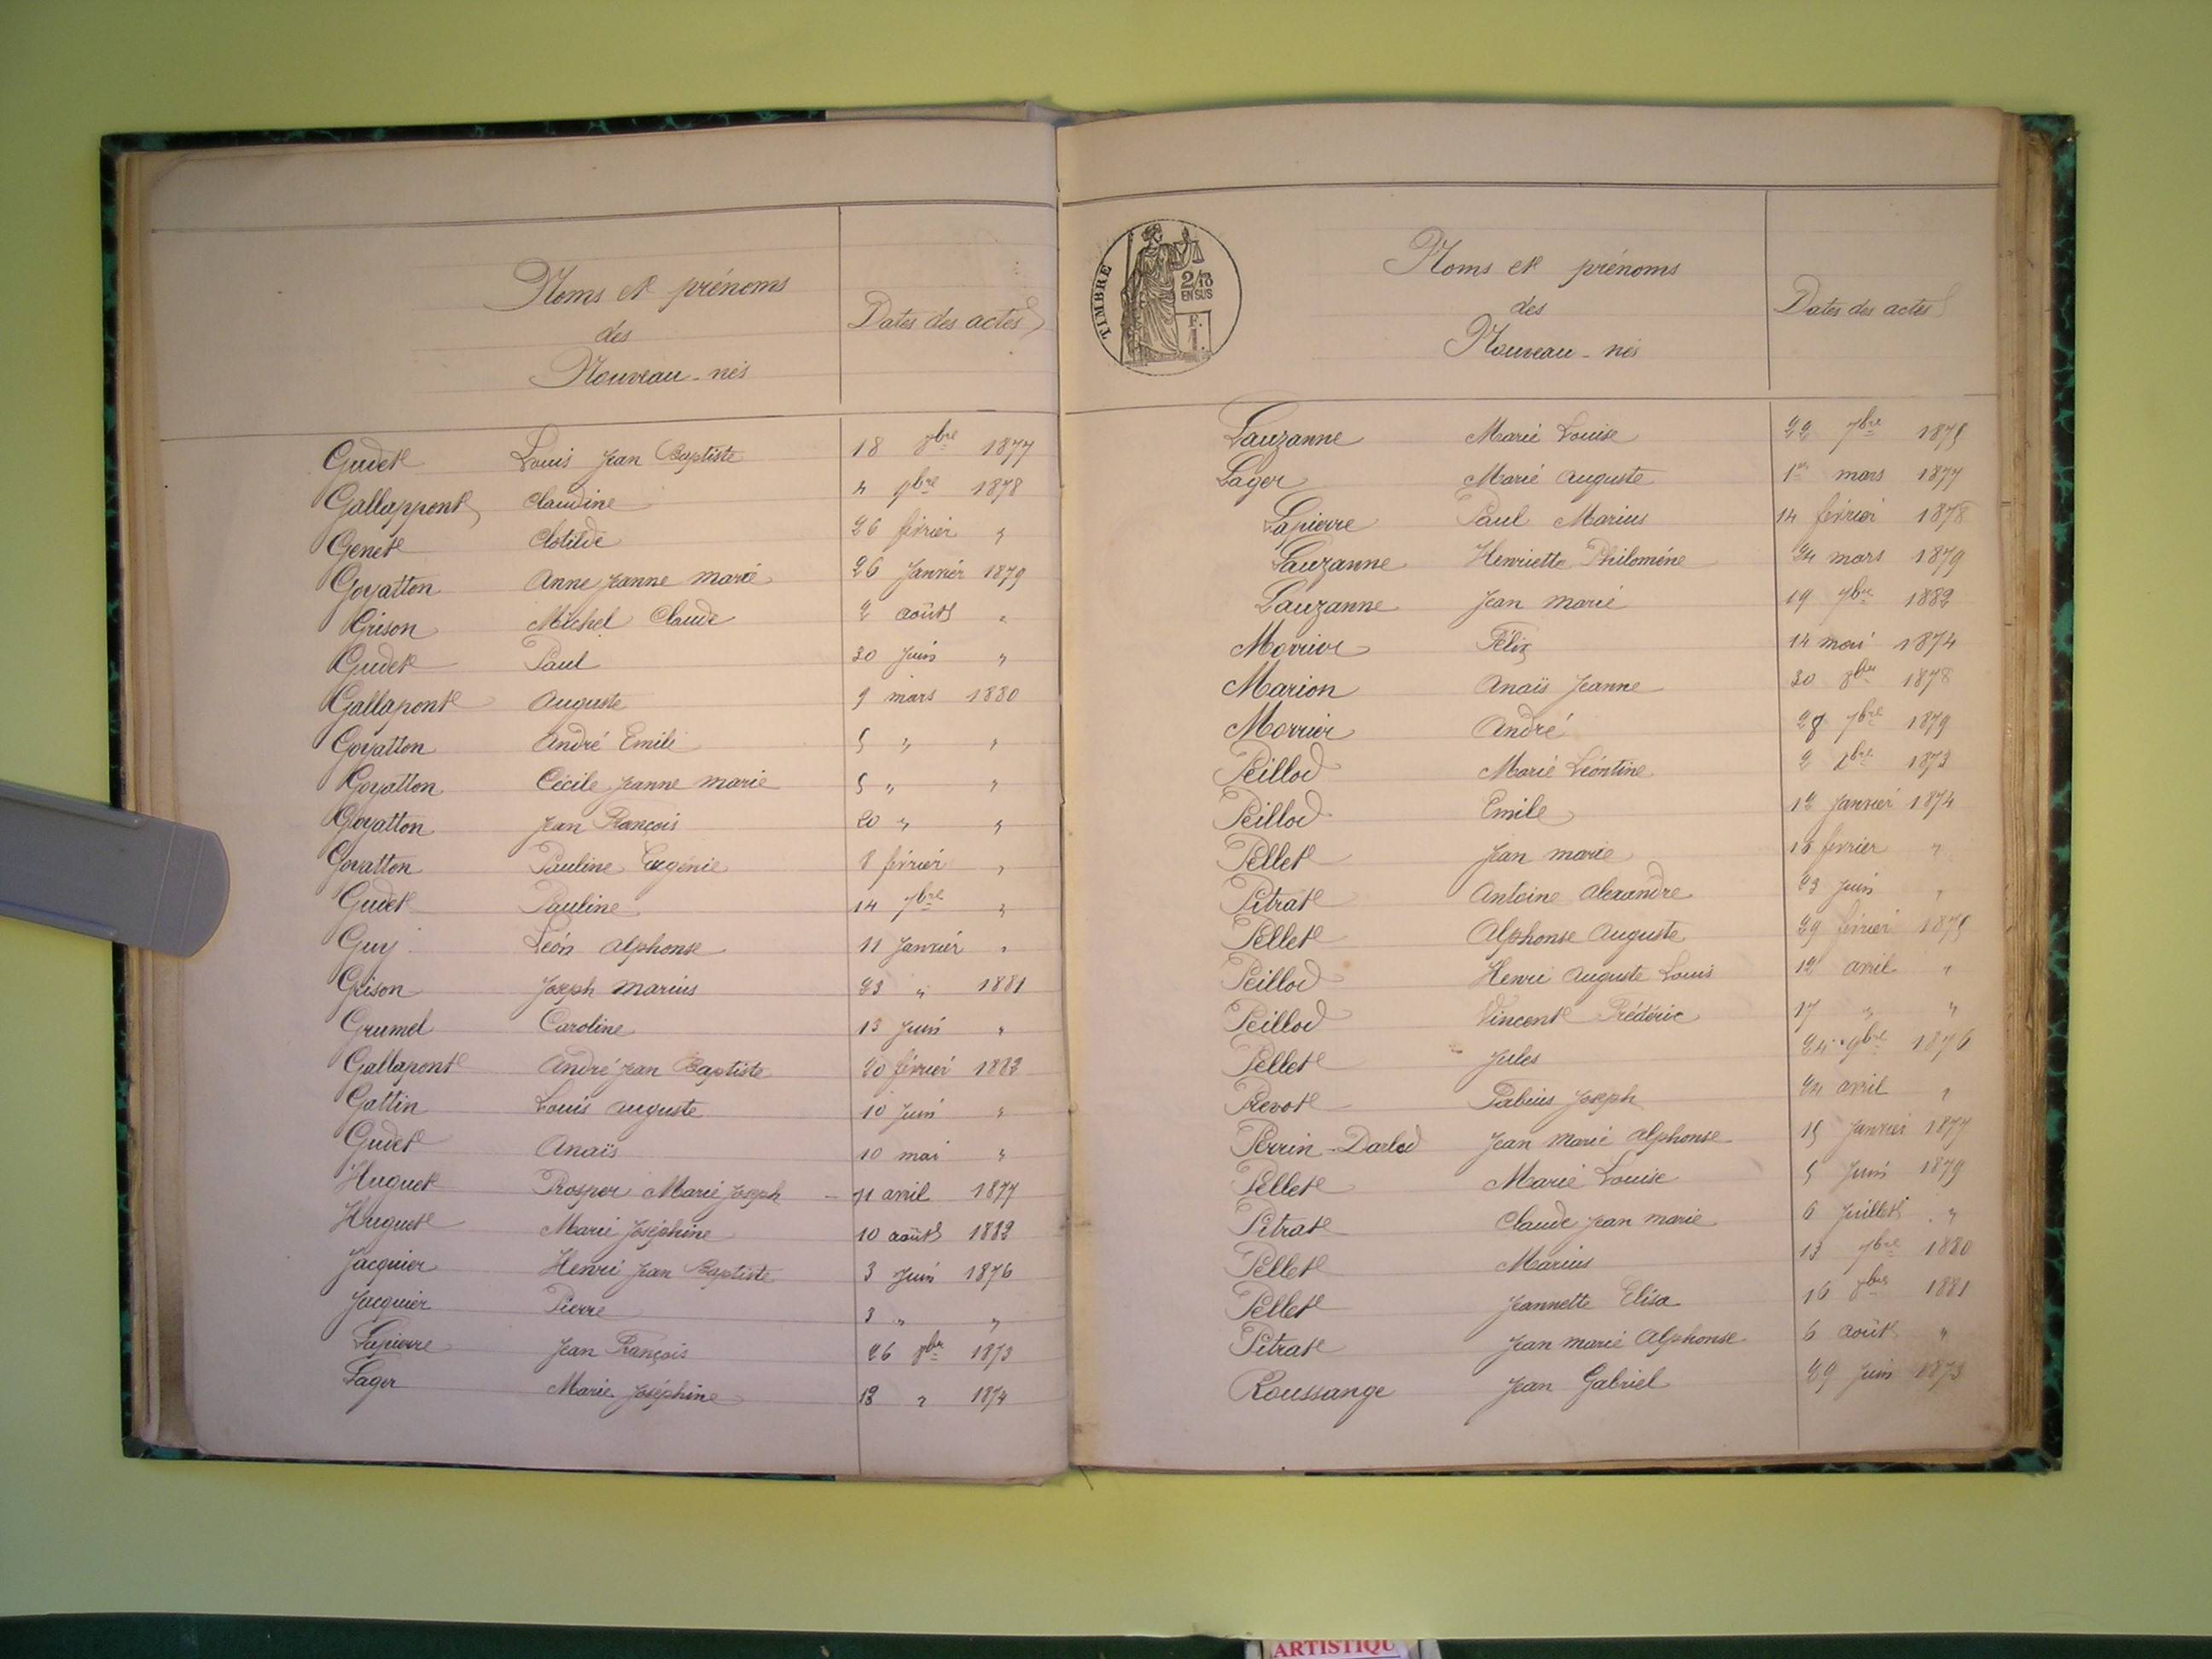 Noms et prénoms
des
Nouveau-nés
Dates des actes
Gudet Louis Jean Baptiste 18 8bre 1877
Gallappont Claudine 4 9bre 1878
Genet Clotilde 26 février "
Goyatton Anne Jeanne Marie 26 Janvier 1879
Grison Michel Claude 2 août "
Gudet Paul 30 Juin "
Gallapont Auguste 9 mars 1880
Goyatton André Emile 5 " "
Goyatton Cécile Jeanne Marie 5 " "
Goyatton Jean François 20 " "
Goyatton Pauline Eugénie 8 février "
Gudet Pauline 14 7bre "
Guy Léon Alphonse 11 Janvier "
Grison Joseph Marius 23 " 1881
Grumel Caroline 13 Juin "
Gallapont André Jean Baptiste 20 février 1882
Gattin Louis Auguste 10 Juin "
Gudet Anaïs 10 mai "
Huguet Prosper Marie Joseph - 11 avril 1877
Huguet Marie Joséphine 10 août 1882
Jacquier Henri Jean Baptiste 3 Juin 1876
Jacquier Pierre 3 " "
Lapierre Jean François 26 8bre 1873
Lager Marie Joséphine " 1874
TIMBRE
2/10
EN SUS
F.
1.
Noms et prénoms
des
Nouveau-nés
Dates des actes
Lauzanne Marie Louise 22 7bre 1875
Lager Marie Auguste 1er mars 1877
Lapierre Paul Marius 14 février 1878
Lauzanne Henriette Philomène 24 mars 1879
Lauzanne Jean Marie 19 1882
Morrier Félix 14 mai 1874
Marion Anaïs Jeanne 30 8bre 1878
Morrier André 7bre 1879
Peillod Marie Léontine 2 1873
Peillod Emile 12 Janvier 1874
Pellet Jean Marie février "
Pitrat Antoine Alexandre 23 Juin "
Pellet Alphonse Auguste février 1875
Peillod Henri Auguste Louis 12 avril "
Peillod Vincent Frédéric 17 " "
Pellet Jules 24 9bre 1876
Prevot Fabius Joseph 24 avril "
Perrin-Darlod Jean Marie Alphonse 15 Janvier 1877
Pellet Marie Louise 5 Juin 1879
Pitrat Claude Jean Marie 6 Juillet "
Pellet Marius 13 1880
Pellet Jeannette Elisa 16 8bre 1881
Pitrat Jean Marie Alphonse 6 août "
Roussange Jean Gabriel 29 Juin 1873
ARTISTIQU